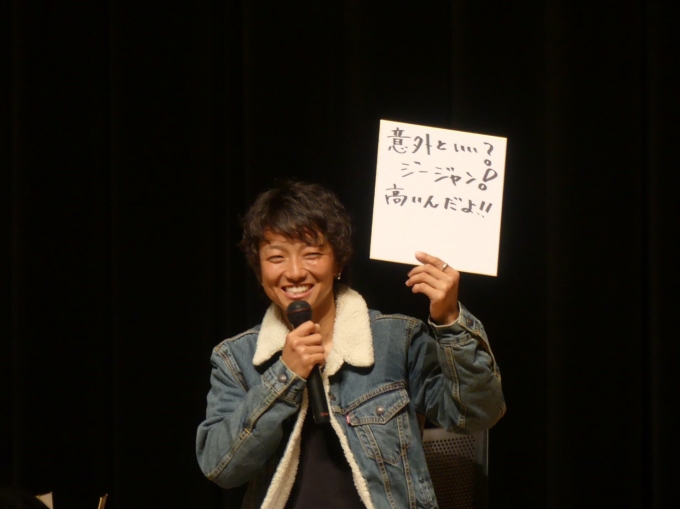 意外といい?
ジージャン!
高いんだよ!!